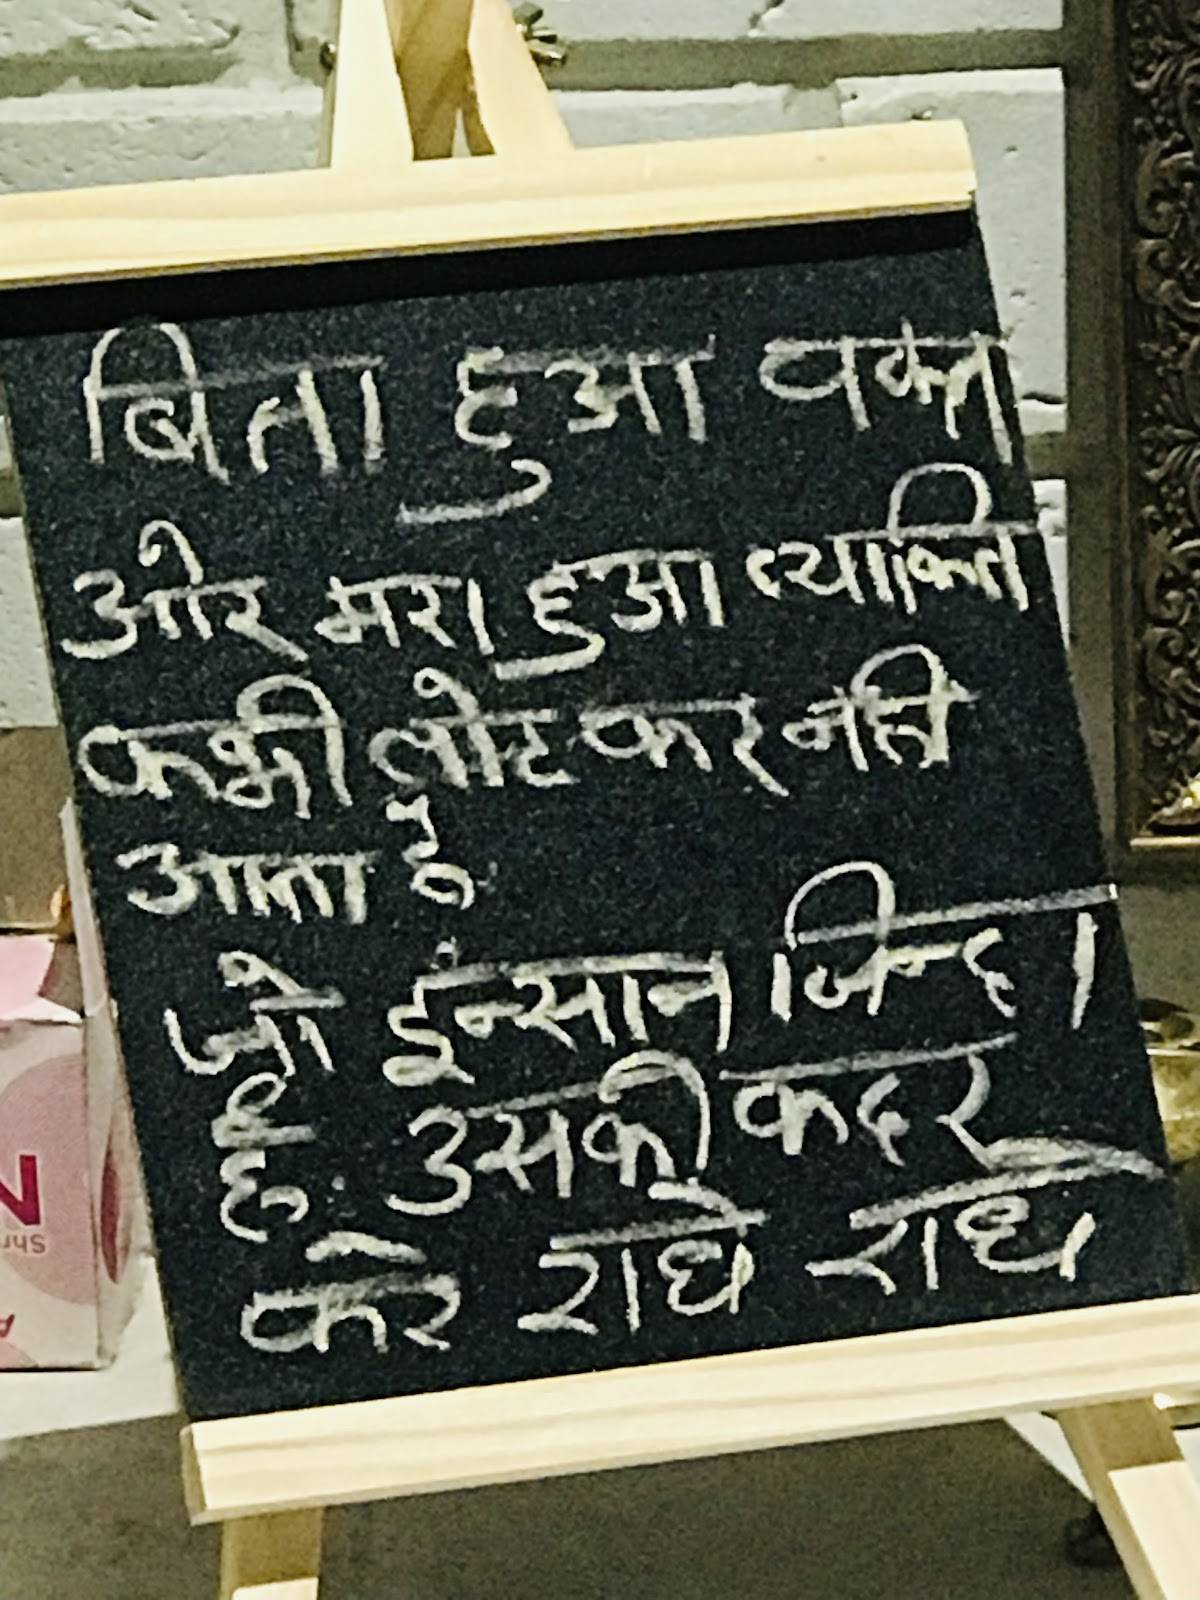 बिता हुआ वक्त
ओर मरा हुआ व्यक्ति
कभी लोट कर नही
आता
जो इंन्सान जिन्दा
है उसकी कदर
करे राधे राधे
N
Shr